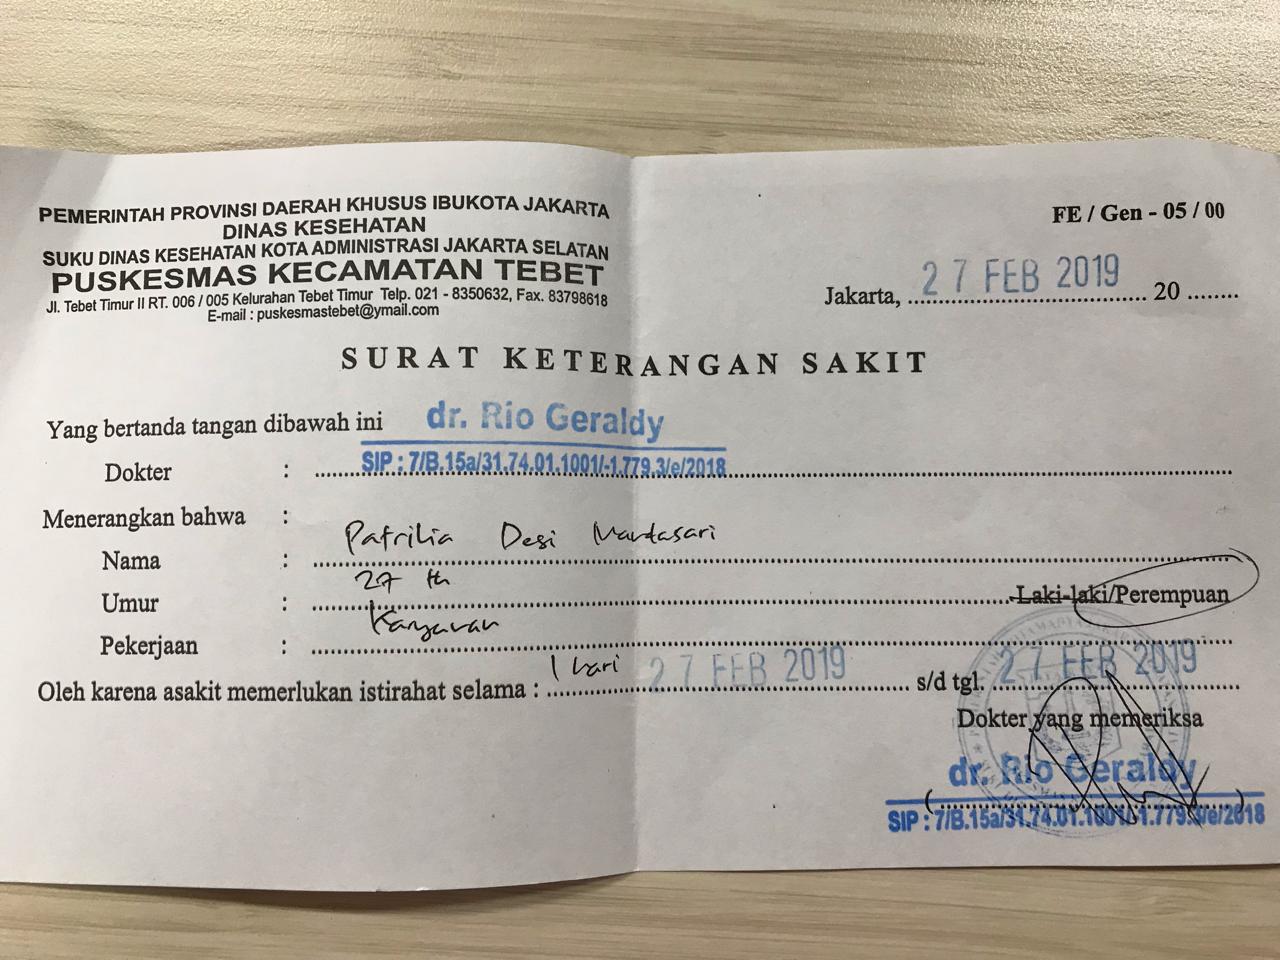 PEMERINTAH PROVINSI DAERAH KHUSUS IBUKOTA JAKARTA
DINAS KESEHATAN
SUKU DINAS KESEHATAN KOTA ADMINISTRASI JAKARTA SELATAN
PUSKESMAS KECAMATAN TEBET
Jl. Tebet Timur II RT. 006 / 005 Kelurahan Tebet Timur Telp. 021 - 8350632, Fax. 83798618
E-mail : puskesmastebet@ymail.com
FE / Gen - 05 / 00
Jakarta, 27 FEB 2019 20 ........
SURAT KETERANGAN SAKIT
Yang bertanda tangan dibawah ini dr. Rio Geraldy
Dokter : SIP : 7/B.15a/31.74.01.1001/-1.779.3/e/2018
Menerangkan bahwa :
Nama : Patrilia Desi Mardasari
Umur : 27 th Laki-laki/Perempuan
Pekerjaan : Karyawan
Oleh karena asakit memerlukan istirahat selama : 1 hari 27 FEB 2019 s/d tgl. 27 FEB 2019
Dokter yang memeriksa
dr. Rio Geraldy
SIP : 7/B.15a/31.74.01.1001/-1.779.3/e/2018